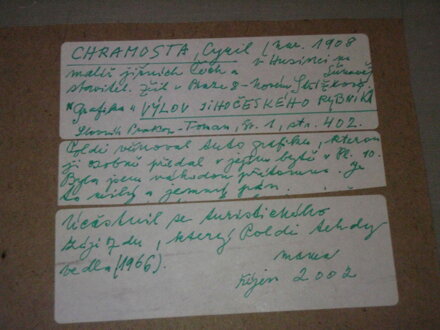 CHRAMOSTA, Cyril / nar. 1908
malíř jižních Čech a v Husinci na Šumavě
stavitel. Žil v Praze 8 - 
"Grafika" VÝLOV JIHOČESKÉHO RYBNÍKA
Slovník Toman, sv. 1, str. 402.
Poldi věnoval tuto grafiku, kterou
jí osobně předal v jejím bytě v Pl. 10.
Byla jsem náhodou přítomna. Je
to milý a jemný pán.
Účastnil se turistického
zájezdu, který Poldi tehdy
vedla (1966).
mama
říjen 2002